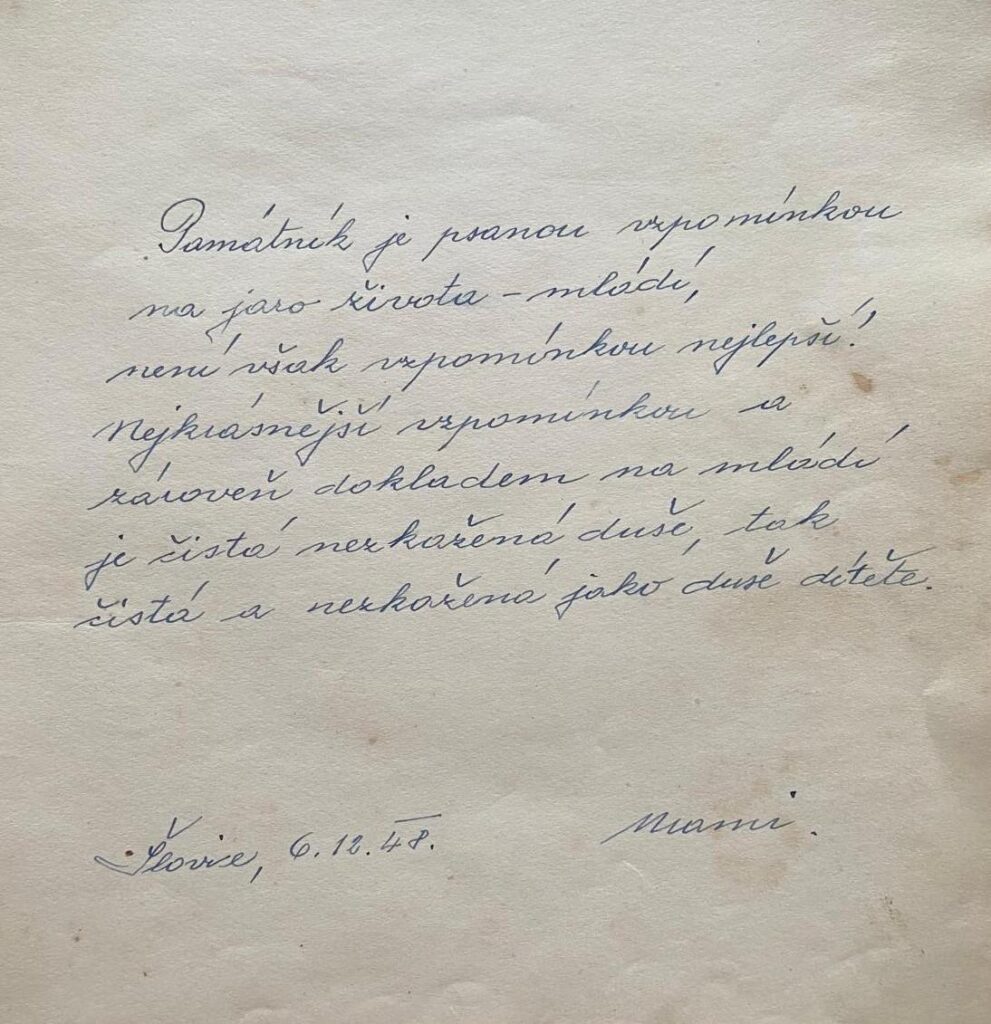 Památník je psanou vzpomínkou
na jaro života - mládí,
není však vzpomínkou nejlepší!
Nejkrásnější vzpomínkou a
zároveň dokladem na mládí
je čistá nezkažená duše, tak
čistá a nezkažená jako duše dítěte.
6.12.48. Mami.